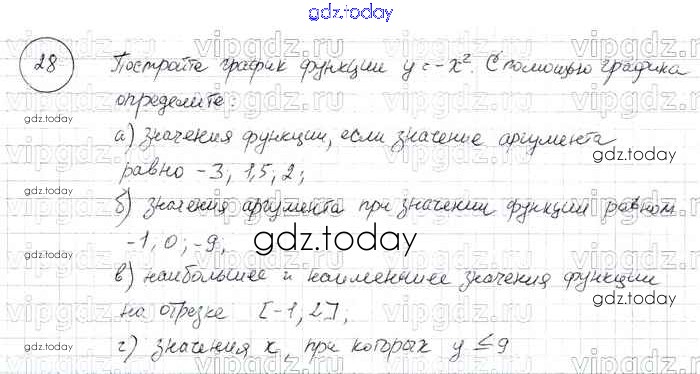 gdz.today
28
Постройте график функции y = -x². С помощью графика
определите:
а) значения функции, если значение аргумента
равно -3, 1,5, 2;
б) значения аргумента при значении функции равном
-1, 0, -9,
в) наибольшее и наименьшее значения функции
на отрезке [-1, 2],
г) значения x, при которых y ≤ 9
gdz.today
gdz.today
gdz.today
gdz.today
gdz.today
gdz.today
gdz.today